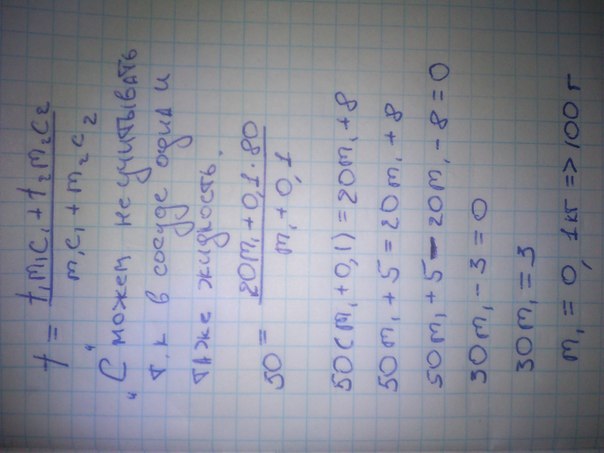 t = t₁m₁c₁ + t₂m₂c₂ / m₁c₁ + m₂c₂
"С" можем не учитывать
т.к в сосуде одна и
таже жидкость.
50 = 20m₁ + 0,1 · 80 / m₁ + 0,1
50(m₁ + 0,1) = 20m₁ + 8
50m₁ + 5 = 20m₁ + 8
50m₁ + 5 - 20m₁ - 8 = 0
30m₁ - 3 = 0
30m₁ = 3
m₁ = 0,1кг => 100 г